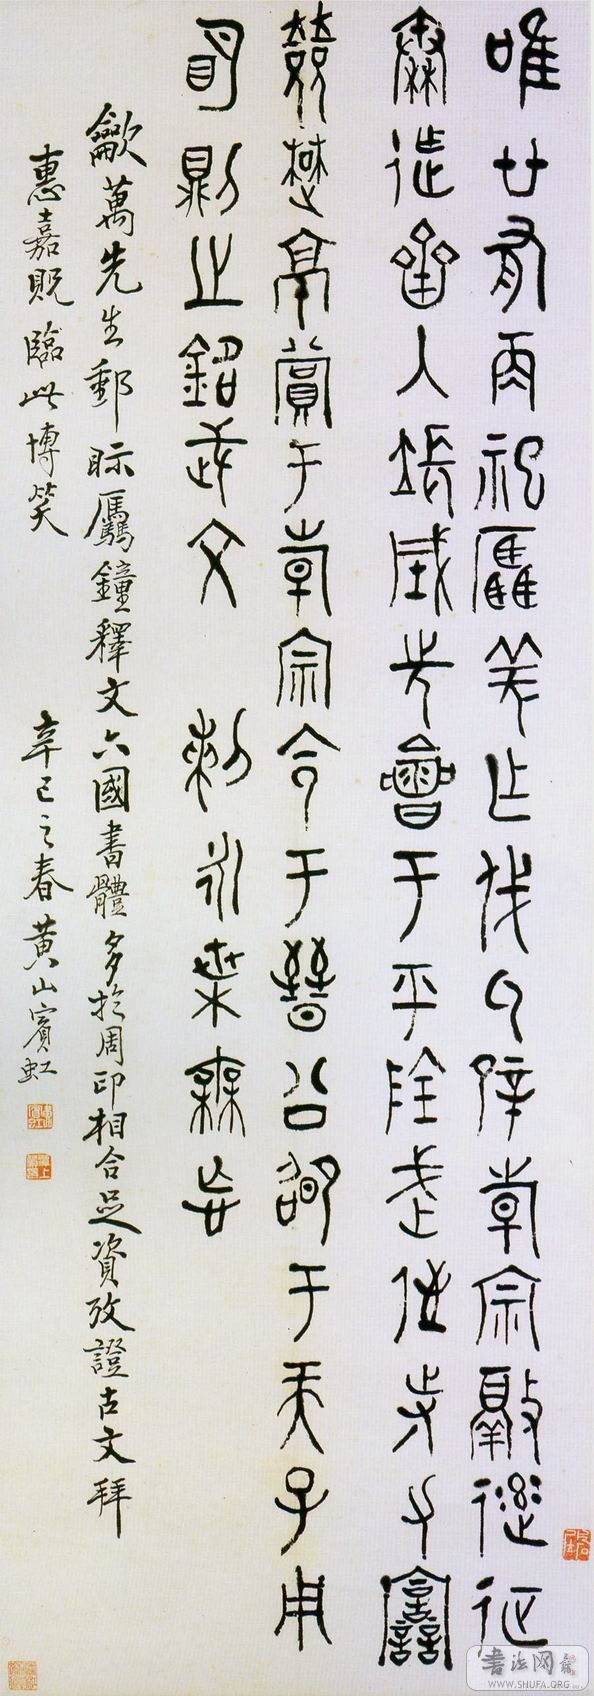 唯廿又再祀驫羌乍伐厥辟韓宗徹率征
秦迮齊入長城先會于平陰武侄寺力譱
敓楚京賞于韓宗令于晉公卲于天子用
明則之銘武文 剌永枼
歙萬先生郵眎驫鐘釋文六國書體多於周印相合足資攷證古文拜
惠嘉貺臨此博笑 辛巳之春黃山賓虹
書法网
WWW.SHUFA.ORG